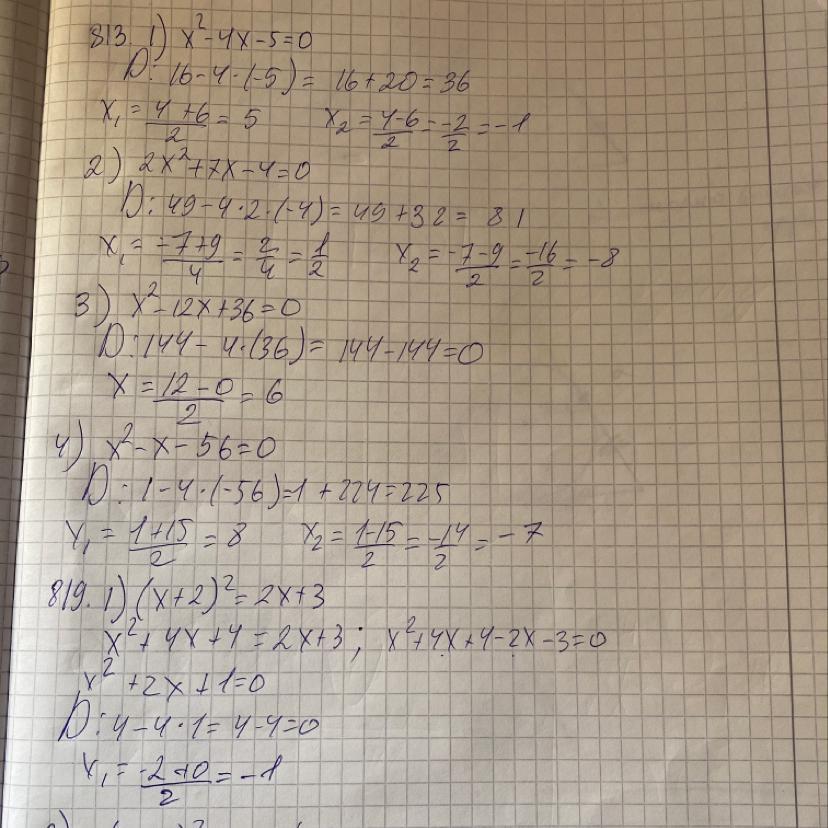 813. 1) x²-4x-5=0
D: 16-4·(-5)= 16+20=36
x₁=(4+6)/2=5 x₂=(4-6)/2=(-2)/2=-1
2) 2x²+7x-4=0
D: 49-4·2·(-4)=49+32= 81
x₁=(-7+9)/4=2/4=1/2 x₂=(-7-9)/2=(-16)/2=-8
3) x²-12x+36=0
D: 144-4·(36)= 144-144=0
x=(12-0)/2=6
4) x²-x-56=0
D: 1-4·(-56)=1+224=225
x₁=(1+15)/2=8 x₂=(1-15)/2=(-14)/2=-7
819. 1) (x+2)²=2x+3
x²+4x+4=2x+3; x²+4x+4-2x-3=0
x²+2x+1=0
D: 4-4·1=4-4=0
x₁=(-2+0)/2=-1